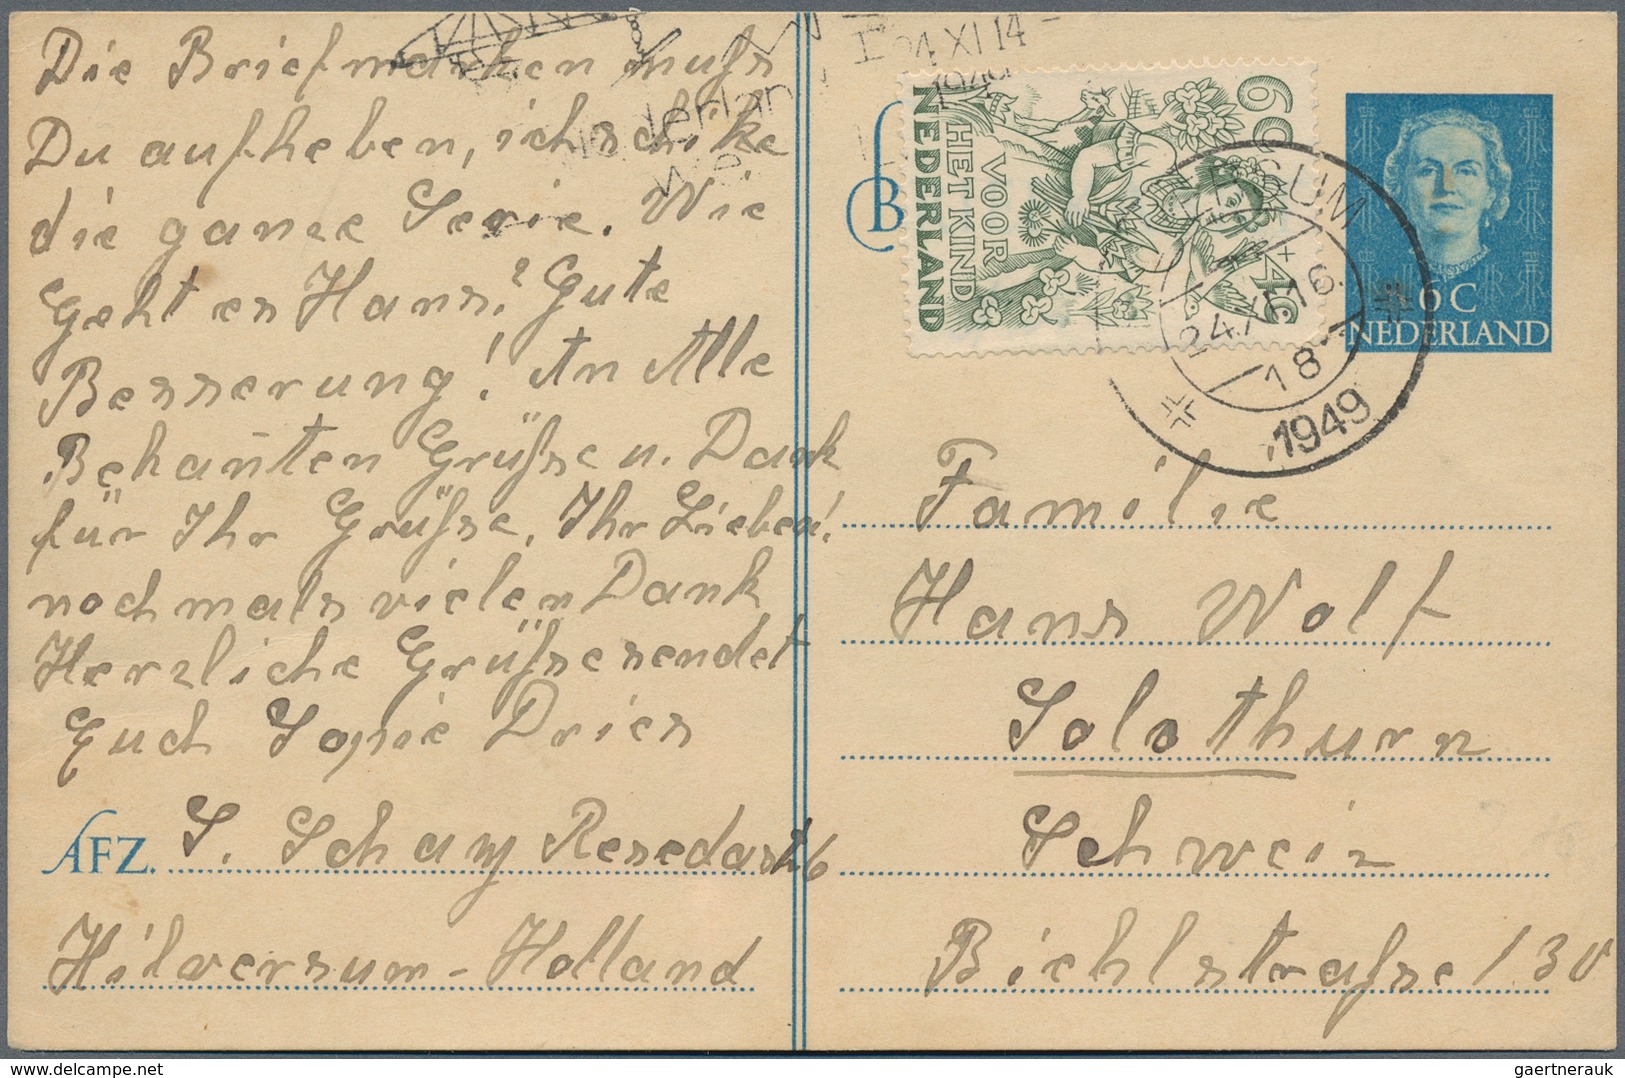 Die Briefmarken muss
Du aufheben, ich schike
die ganze Serie. Wie
Geht es Hans? Gute
Besserung! An Alle
Bekanten Grüsse u. Dank
für Ihr Grüsse, Ihr Lieben!
nochmals vielen Dank
Herzliche Grüsse sendet
Euch Sopie Dries
AFZ. S. Schamy Resedastr 6
Hilversum - Holland
24 XI 14
1949
Nederland
B
6c
+4c
VOOR
HET KIND
NEDERLAND
24.XI.16
18
1949
6 C
NEDERLAND
Familie
Hans Wolf
Solothurn
Schweiz
Biehlstrasse 130
gaertnerauk